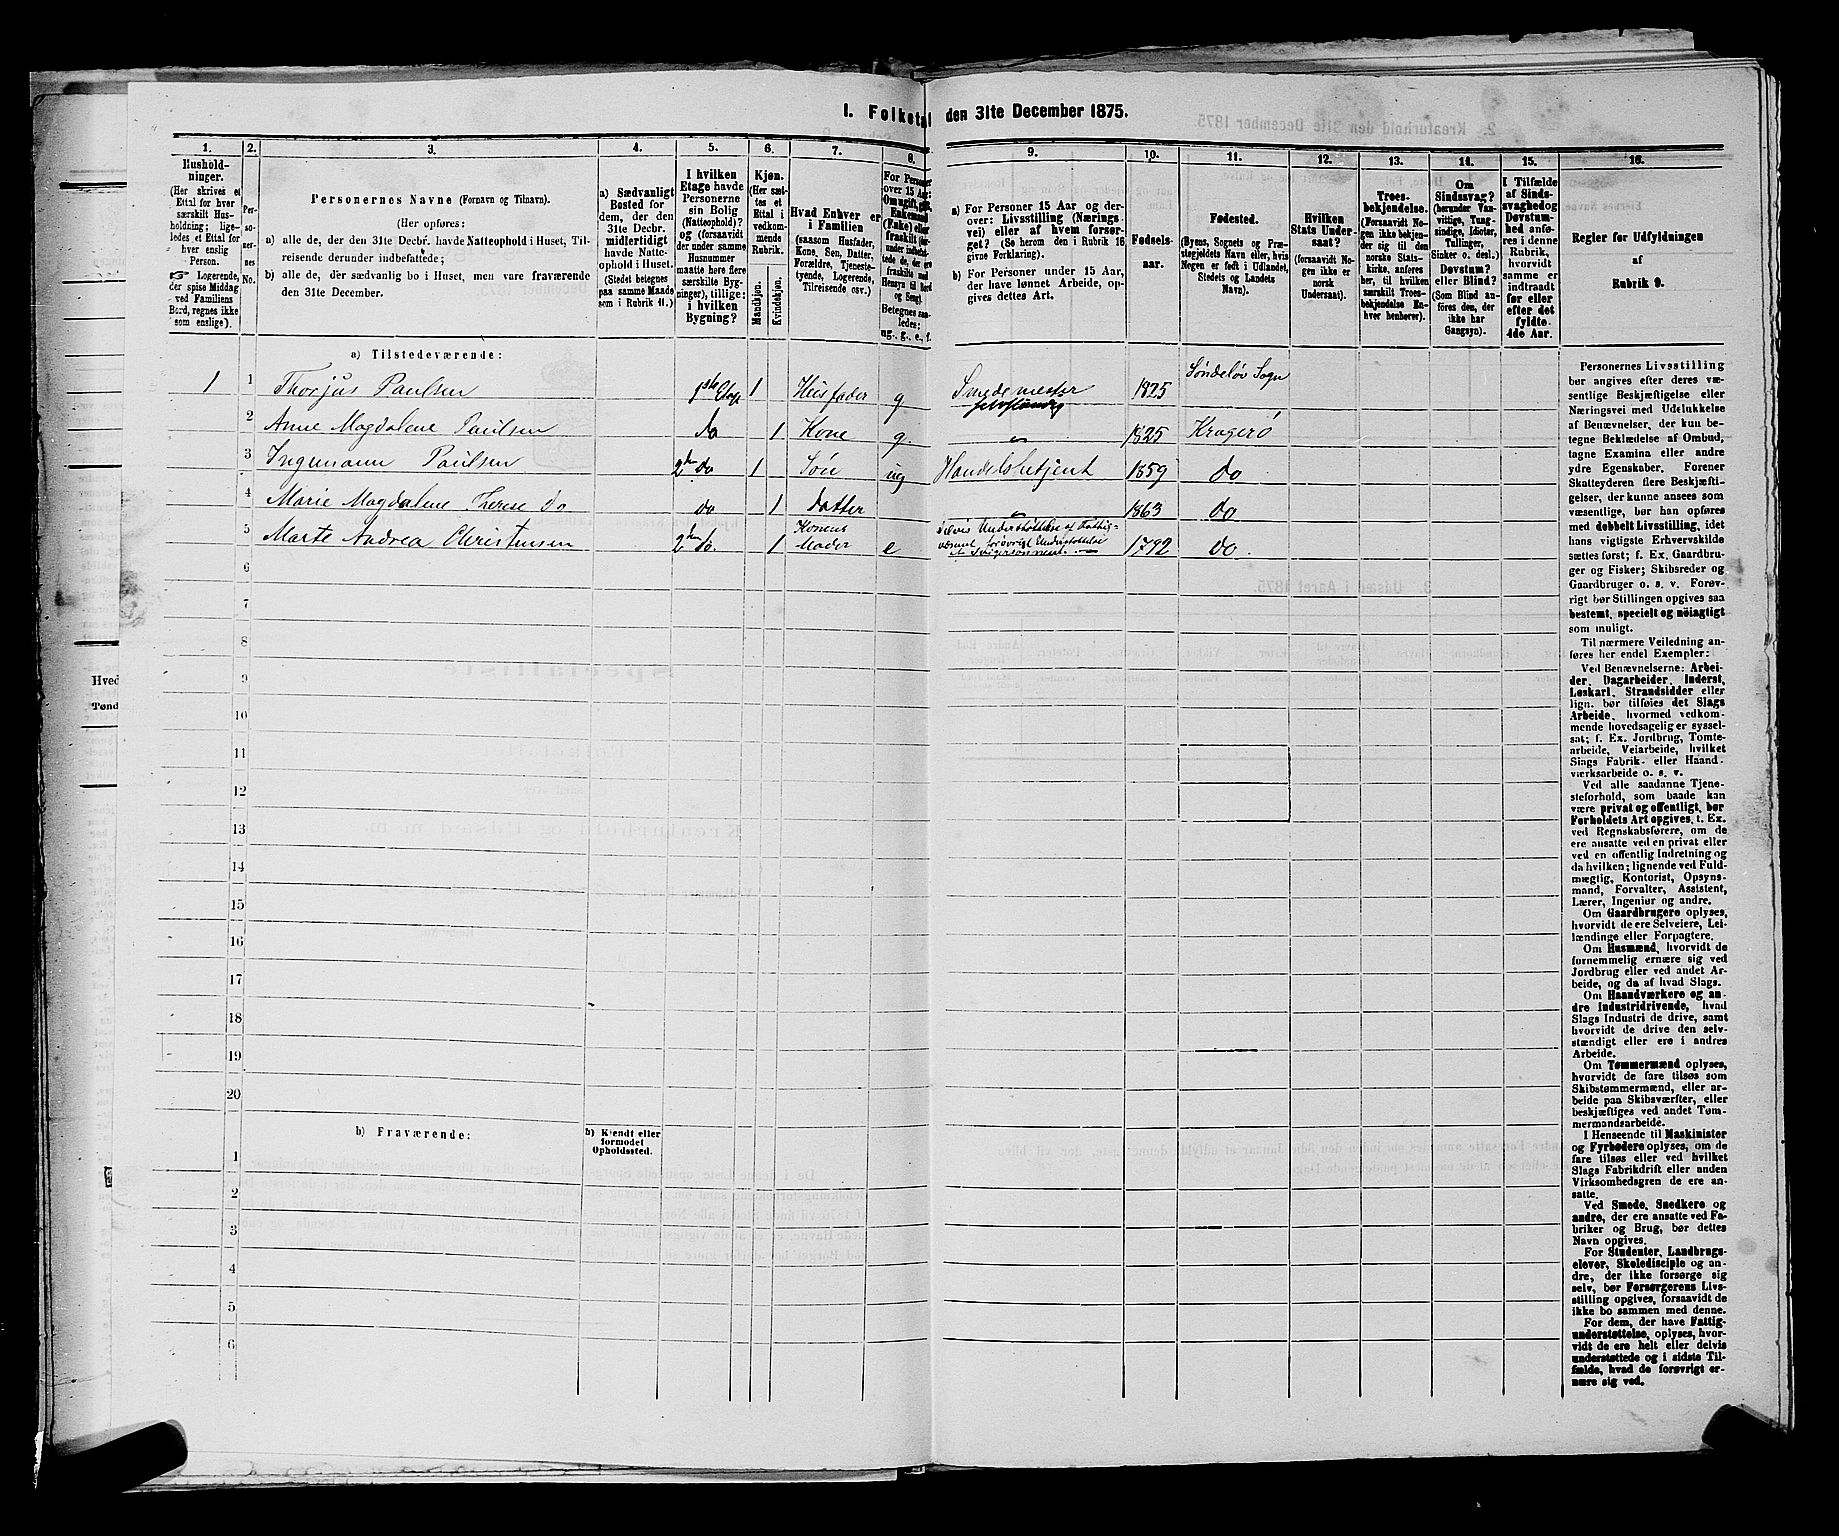 I. Folketal den 31te December 1875.
1. 2. 3. 4. 5. 6. 7. 8. 9. 10. 11. 12. 13. 14. 15. 16.
Hushold-
ninger.
(Her skrives et
Ettal for hver
særskilt Hus-
holdning; lige-
ledes et Ettal for
hver enslig
Person.
☞ Logerende,
der spise Middag
ved Familiens
Bord, regnes ikke
som enslige).
Per-
so-
ner-
nes
No.
Personernes Navne (Fornavn og Tilnavn).
(Her opføres:
a) alle de, der den 31te Decbr. havde Natteophold i Huset, Til-
reisende derunder indbefattede;
b) alle de, der sædvanlig bo i Huset, men vare fraværende
den 31te December.
a) Sædvanligt
Bosted for
dem, der den
31te Decbr.
midlertidigt
havde Natte-
ophold i Huset.
(Stedet betegnes
paa samme Maade
som i Rubrik 11.)
I hvilken
Etage havde
Personerne
sin Bolig
(Natteophold)?
og (forsaavidt
der under samme
Husnummer
maatte høre flere
særskilte Byg-
ninger), tillige:
i hvilken
Bygning?
Kjøn.
(Her sæt-
tes et
Ettal i
vedkom-
mende
Rubrik.
Mandkjøn.
Kvindekjøn.
Hvad Enhver er
i Familien
(saasom Husfader,
Kone, Søn, Datter,
Forældre, Tjeneste-
tyende, Logerende,
Tilreisende osv.)
For Personer
over 15 Aar:
Betegnes saa-
ledes:
ug., g., e., f.
a) For Personer 15 Aar og der-
over: Livsstilling (Nærings-
vei) eller af hvem forsør-
get? (Se herom den i Rubrik 16
givne Forklaring).
b) For Personer under 15 Aar,
der have lønnet Arbeide, op-
gives dettes Art.
Fødsels-
aar.
Fødested.
(Byens, Sognets og Præ-
stegjeldets Navn eller, hvis
Nogen er født i Udlandet,
Stedets og Landets
Navn).
Hvilken
Stats Under-
saat?
(forsaavidt No-
gen ikke er
norsk
Undersaat).
Troes-
bekjendelse.
(Forsaavidt No-
gen ikke bekjen-
der sig til den
norske Stats-
kirke, anføres
her, til hvilken
særskilt Troes-
bekjendelse En-
hver henhører).
Om
Sindssvag?
(herunder Van-
vittige, Tung-
sindige, Idioter,
Tullinger,
Sinker o. desl.)
Døvstum?
eller Blind?
(Som Blind an-
føres den, der
ikke har
Gangsyn).
I Tilfælde
af Sinds-
svaghed og
Døvstum-
hed anfø-
res i denne
Rubrik,
hvorvidt
samme er
indtraadt
før eller
efter det
fyldte
4de Aar.
Regler før Udfyldningen
af
Rubrik 9.
a) Tilstedeværende:
1 1 Thorjus Paulsen 1ste Etage 1 Huusfader g Smedemester 1825 Søndeløv Sogn
selvstændig
2 Anne Magdalene Paulsen do 1 Kone g. " 1825 Kragerø
3 Ingemann Paulsen 2den do 1 Søn ug Handelsbetjent 1859 do
4 Marie Magdalene Therese do do 1 datter " 1863 do
5 Marte Andrea Christensen 2den do. 1 Konens Moder e delvis Understøttelse af Fattig-
væsenet forøvrigt Understøttelse
af Svigersønnen. 1792 do.
6
7
8
9
10
11
12
13
14
15
16
17
18
19
20
b) Fraværende:
b) Kjendt eller
formodet
Opholdssted.
1
2
3
4
5
6
Personernes Livsstilling
bør angives efter deres væ-
sentlige Beskjæftigelse eller
Næringsvei med Udelukkelse
af Benævnelser, der kun be-
tegne Beklædelse af Ombud,
tagne Examina eller andre
ydre Egenskaber. Forener
Skatteyderen flere Beskjæfti-
gelser, der kunne ansees som
væsentlige, bør han opføres
med dobbelt Livsstilling, idet
hans vigtigste Erhvervskilde
sættes først; f. Ex. Gaardbru-
ger og Fisker; Skibsreder og
Gaardbruger o. s. v. Forøv-
rigt bør Stillingen opgives saa
bestemt, specielt og nöiagtigt
som muligt.
Til nærmere Veiledning an-
føres her endel Exempler:
Ved Benævnelserne: Arbei-
der, Dagarbeider, Inderst,
Løskarl, Strandsidder eller
lign. bør tilføies det Slags
Arbeide, hvormed vedkom-
mende hovedsagelig er syssel-
sat; f. Ex. Jordbrug, Tomte-
arbeide, Veiarbeide, hvilket
Slags Fabrik- eller Haand-
værksarbeide o. s. v.
Ved alle saadanne Tjene-
steforhold, som baade kan
være privat og offentligt, bør
Forholdets Art opgives, t. Ex.
ved Regnskabsførere, om de
ere ansatte ved en privat eller
ved en offentlig Indretning og
da hvilken; lignende ved Fuld-
mægtig, Kontorist, Opsyns-
mand, Forvalter, Assistent,
Lærer, Ingeniør og andre.
Om Gaardbrugere oplyses,
hvorvidt de ere Selveiere, Lei-
lændinge eller Forpagtere.
Om Husmænd, hvorvidt de
fornemmelig ernære sig ved
Jordbrug eller ved andet Ar-
beide, og da af hvad Slags.
Om Haandværkere og an-
dre Industridrivende, hvad
Slags Industri de drive, samt
hvorvidt de drive den selv-
stændigt eller ere i andres
Arbeide.
Om Tømmermænd oplyses,
hvorvidt de fare tilsøs som
Skibstømmermænd, eller ar-
beide paa Skibsværfter, eller
beskjæftiges ved andet Tøm-
mermandsarbeide.
I Henseende til Maskinister
og Fyrbødere oplyses, om de
fare tilsøs eller ved hvilket
Slags Fabrikdrift eller anden
Virksomhedsgren de ere an-
satte.
Ved Smede, Snedkere og
andre, der ere ansatte ved Fa-
briker og Brug, bør dettes
Navn opgives.
For Studenter, Landbrugs-
elever, Skoledisciple og an-
dre, der ikke forsørge sig
selv, bør Forsørgerens Livs-
stilling opgives, forsaavidt de
ikke bo sammen med denne.
For dem, der have Fattig-
understøttelse, oplyses, hvor-
vidt de ere helt eller delvis
understøttede og i sidste Til-
fælde, hvad de forøvrigt er-
nære sig ved.
Hved
Tønd